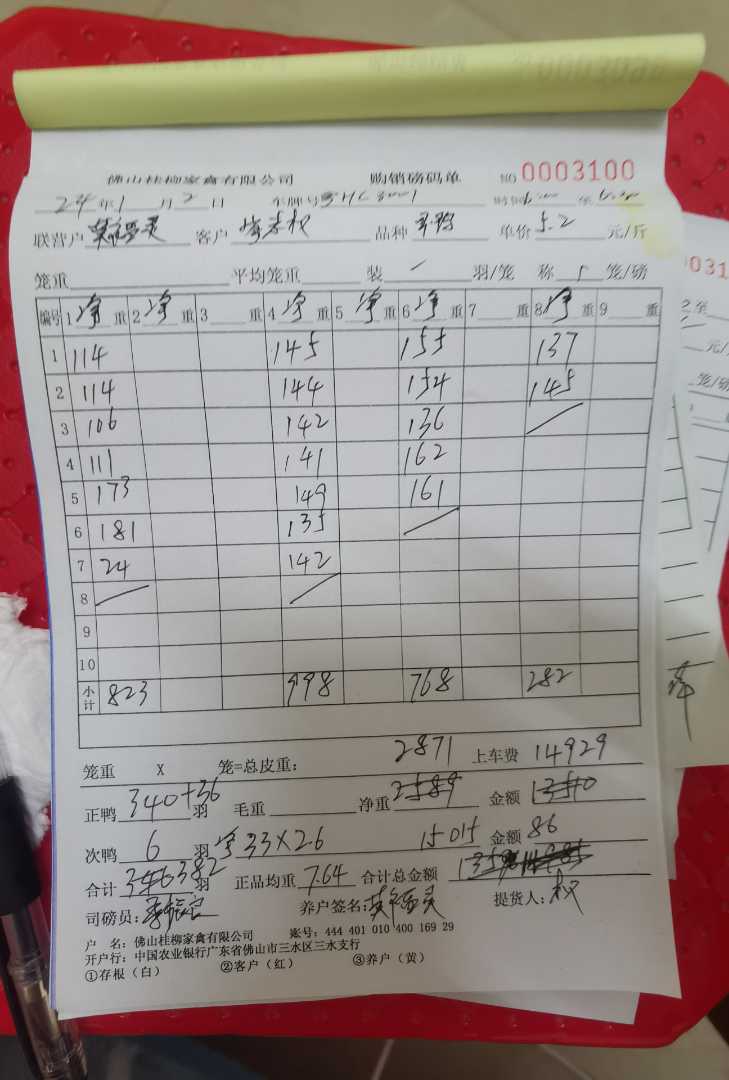 佛山桂柳家禽有限公司 购销磅码单 NO 0003100
24年1月2日 车牌号 时间 至
联营户 客户 品种 单价5.2元/斤
笼重 平均笼重 装 / 羽/笼 称 5 笼/磅
编号 1净重 2净重 3 重 4净重 5净重 6净重 7 重 8净重 9 重
1 114 145 155 137
2 114 144 154 145
3 106 142 136 /
4 111 141 162
5 173 149 161
6 181 135 /
7 24 142
8 / /
9
10
小计 823 998 768 282
笼重 X 笼=总皮重: 2871 上车费 14929
正鸭 340+36 羽 毛重 净重 2589 金额
次鸭 6 羽 净33×26 15015 金额 86
合计 382 羽 正品均重 7.64 合计总金额
司磅员: 养户签名: 提货人: 权
户 名: 佛山桂柳家禽有限公司 账号: 444 401 010 400 169 29
开户行: 中国农业银行广东省佛山市三水区三水支行
①存根（白） ②客户（红） ③养户（黄）